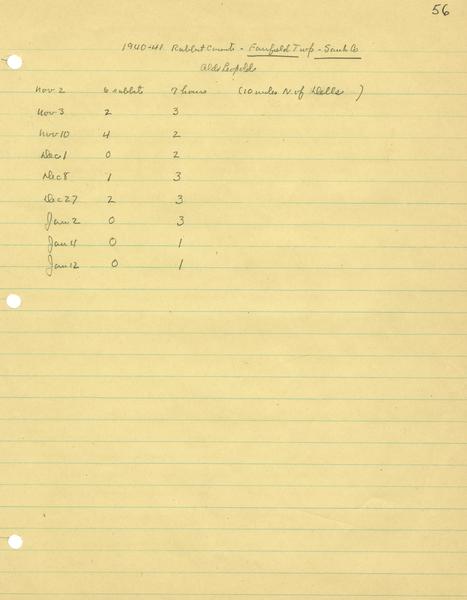 56
1940-41 Rabbit Counts - Fairfield Twp - Sauk Co
Aldo Leopold
Nov 2 6 rabbits 7 hours (10 miles N. of Dells)
Nov 3 2 3
Nov 10 4 2
Dec 1 0 2
Dec 8 1 3
Dec 27 2 3
Jan 2 0 3
Jan 4 0 1
Jan 12 0 1